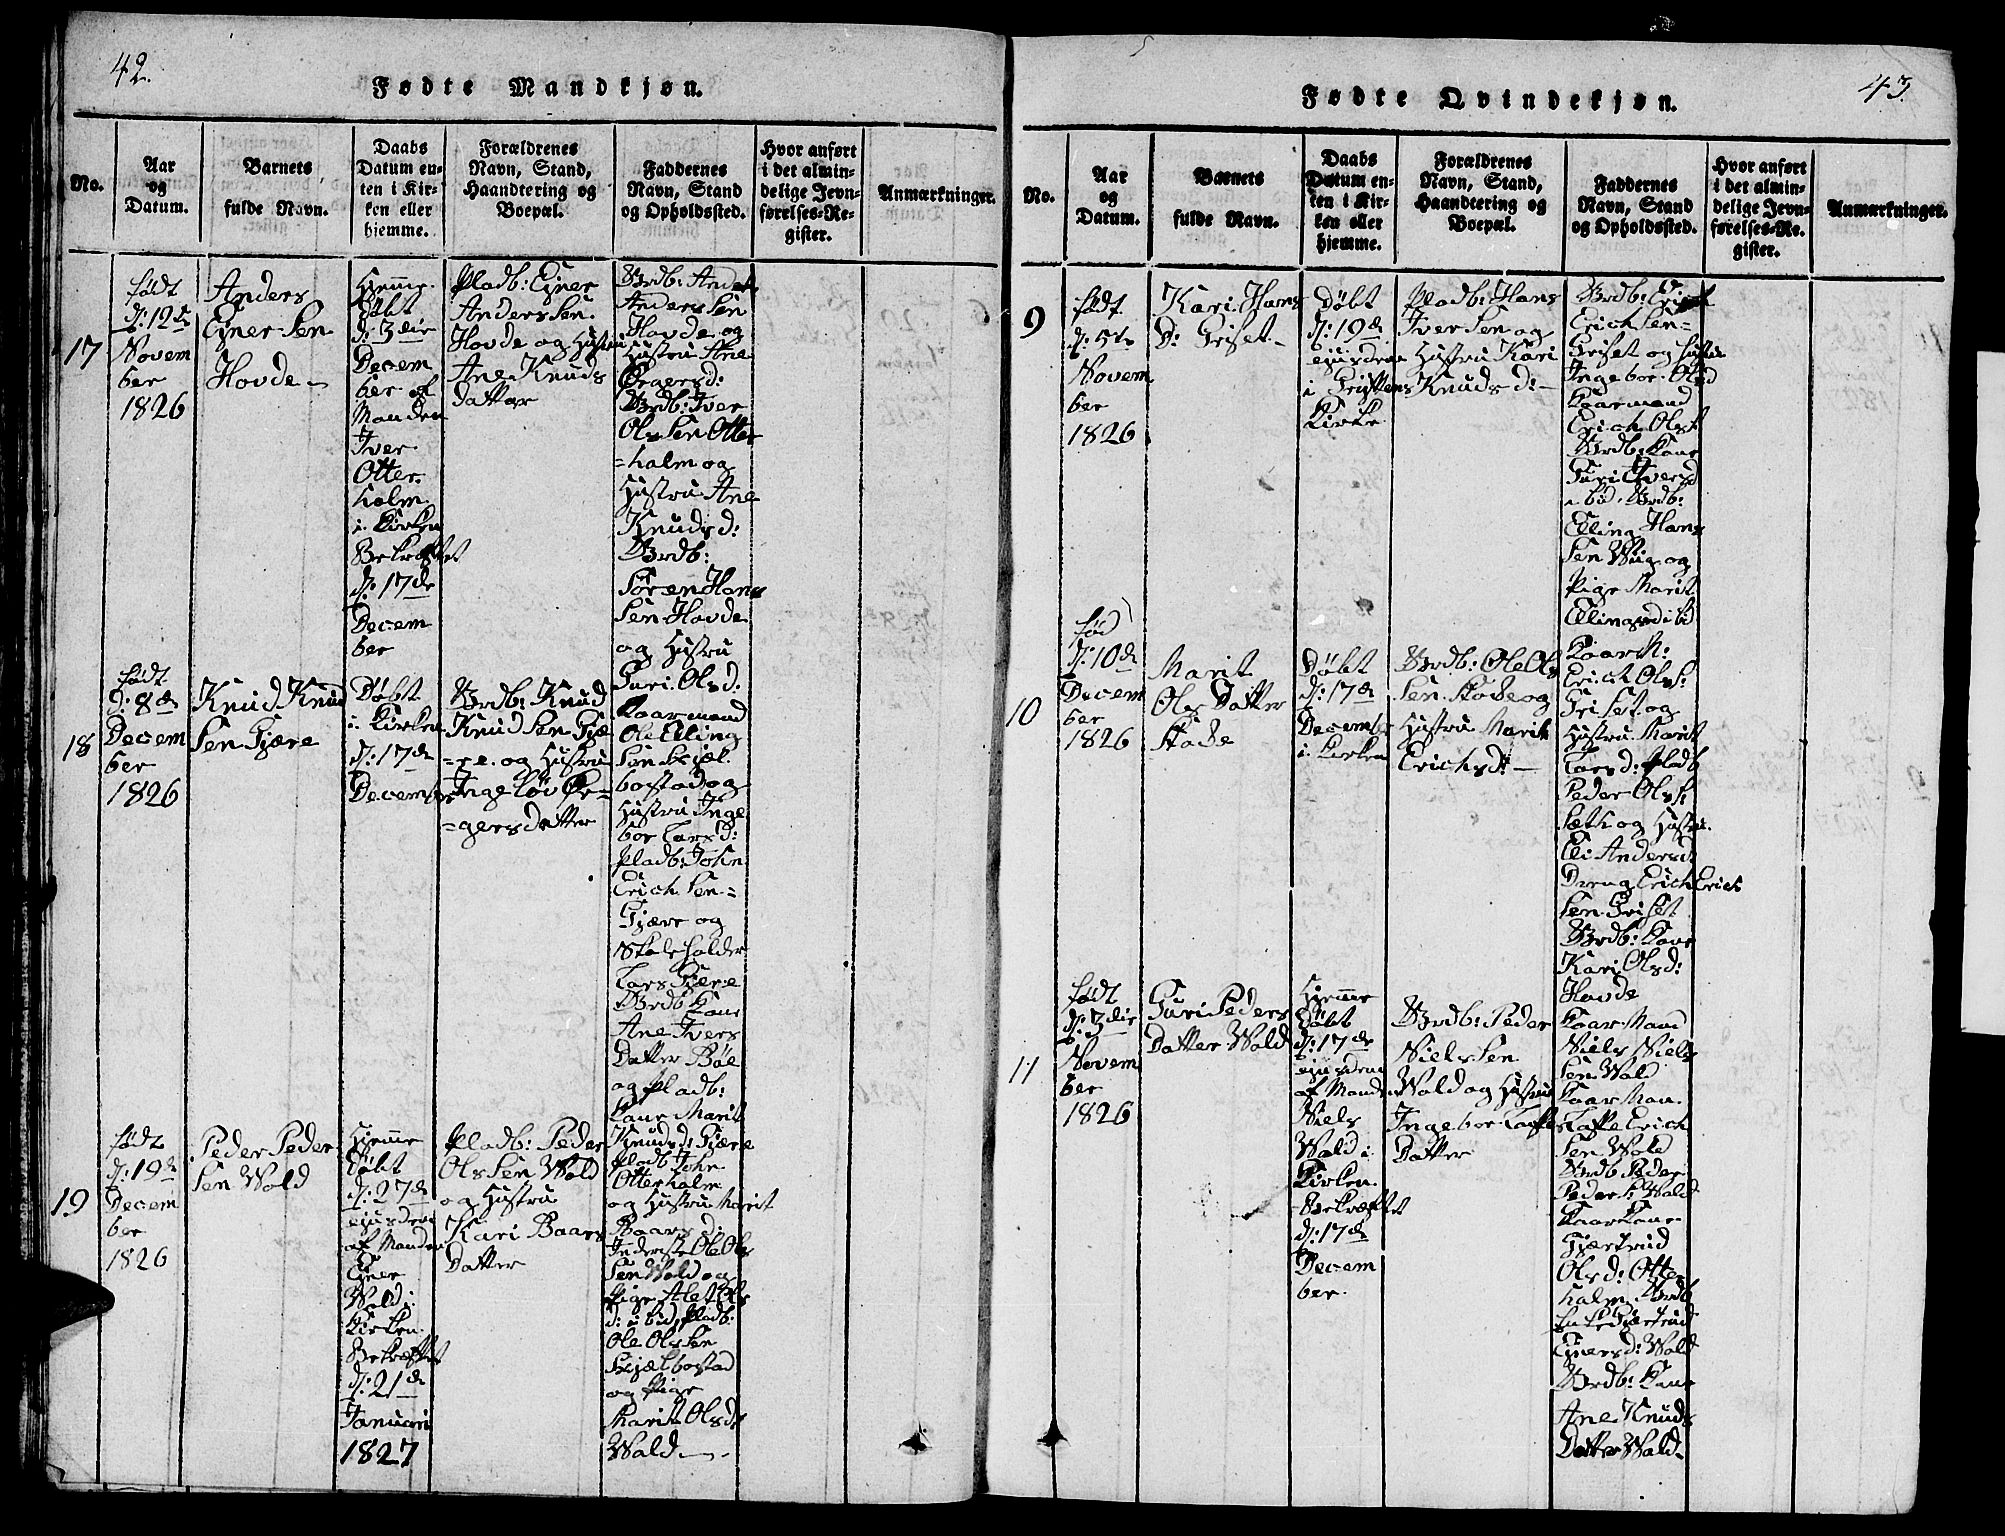 42.
Fødte Mandkjøn.
No.
Aar
og
Datum.
Barnets
fulde Navn.
Daabs
Datum en-
ten i Kir-
ken eller
hjemme.
Forældrenes
Navn, Stand,
Haandtering og
Boepæl.
Faddernes
Navn, Stand
og Opholdssted.
Hvor anført
i det almin-
delige Jevn-
førelses-Re-
gister.
Anmærkninger.
17
født
d: 12te
Novem
ber
1826
Anders
Ejner Sen
Hovde
Hjemme
Døbt
d: 3die
Decem
ber af
Manden
Iver
Otter
holm
i Kirken
Bekræftet
d: 17de
Decem
ber
Pladb: Ejner
Anders Sen
Hovde og Hustru
Ane Knuds
datter
Brdb: Anders
Anders Sen
Hovde og
Hustru Ane
Øragersd:
Brdb: Iver
Ols Sen Otter
=holm og
Hustru Ane
Knudsd:
Brdb:
Søren Hans
Sen Hovde
og Hustru
Guri Olsd:
18
født
d: 8de
Decem
ber
1826
Knud Knud
Sen Gjære
Døbt
i Kirken
d: 17de
December
Brdb: Knud
Knud Sen Gjæ
=re og Hustru
Inge Løv Ør=
=gersdatter
Kaarmand
Ole Elling
Sen Skjæl
bostad og
Hustru Inge
bor Larsd:
Pladb: John
Erich Sen=
Gjære og
Lars Gjære
Brdb Kone
Ane Ivers
Datter Bøe
og Pladb:
Kone Marit
Knudsd: Gjære
19
født
d: 19de
Decem
ber
1826
Peder Peder
Sen Wold
Hjemme
Døbt
d: 27de
ejusdem
af Manden
Ejner
Wold i
Kirken
Bekræftet
d: 21de
Januari
1827
Pladb: Peder
Ols Sen Wold
og Hustru
Kari Baars
Datter
Pladb John
Otterholm
og Hustru Marit
Baarsd:
Inderste Ole Ols
Sen Wold og
Pige Alet Ols
d: ibid, Pladb:
Ole Ols Sen
Skjælbostad
og Pige
Marit Olsd:
Wold
43.
Fødte Qvindekjøn.
No.
Aar
og
Datum.
Barnets
fulde Navn.
Daabs
Datum en-
ten i Kir-
ken eller
hjemme.
Forældrenes
Navn, Stand,
Haandtering og
Boepæl.
Faddernes
Navn, Stand
og Opholdssted.
Hvor anført
i det almin-
delige Jevn-
førelses-Re-
gister.
Anmærkninger.
9
født
d: 5te
Novem
ber
1826
Kari Hans
D: Griset
Døbt
d: 19de
ejusdem
i Gryttens
Kirke
Pladb: Hans
Iver Sen og
Hustru Kari
Knudsd:
Brdb: Erich
Erich Sen=
Griset og Hustru
Ingebor Olsd
Kaarmand
Erich Olss
Brdb: Kone
Guri Iversd
ibid. Brdb:
Elling Hans
Sen Wiig og
Pige Marit
Ellingsd ibid
10
fød
d: 10de
Decem
ber
1826
Marit
Ols Datter
Stade
Døbt
d: 17de
December
i Kirken
Brdb: Ole Ols
Sen Stade og
Hustru Marit
Erichsd:
Kaarm:
Erich Olss:
Griset og
Hustru Marit
Larsd: Pladb
Peder Olss:
Sæth og Hustru
Eli Andersd
Dreng Erich Erich
Sen Griset
Brdb: Kone
Kari Olsd:
Hovde
11
født
d: 3die
Novem
ber
1826
Guri Peders
Datter Wold
Hjemme
Døbt
d: 17de
ejusdem
af Manden
Niels
Wold i
Kirken
Bekræftet
d: 17de
Decem
ber.
Brdb: Peder
Niels Sen
Wold og Hustru
Ingebor
Datter
Kaar Mand
Niels Niels
Sen Wold
Kaar Man
Erich
Sen Wold
Brdb Peder
Peder S: Wold
Kaar Kone
Gjertrud
Olsd: Otter
holm, Brdb
Enke Gjertrud
Ejnersd: Wold
Brdb: Kone
Ane Knuds
Datter Wold